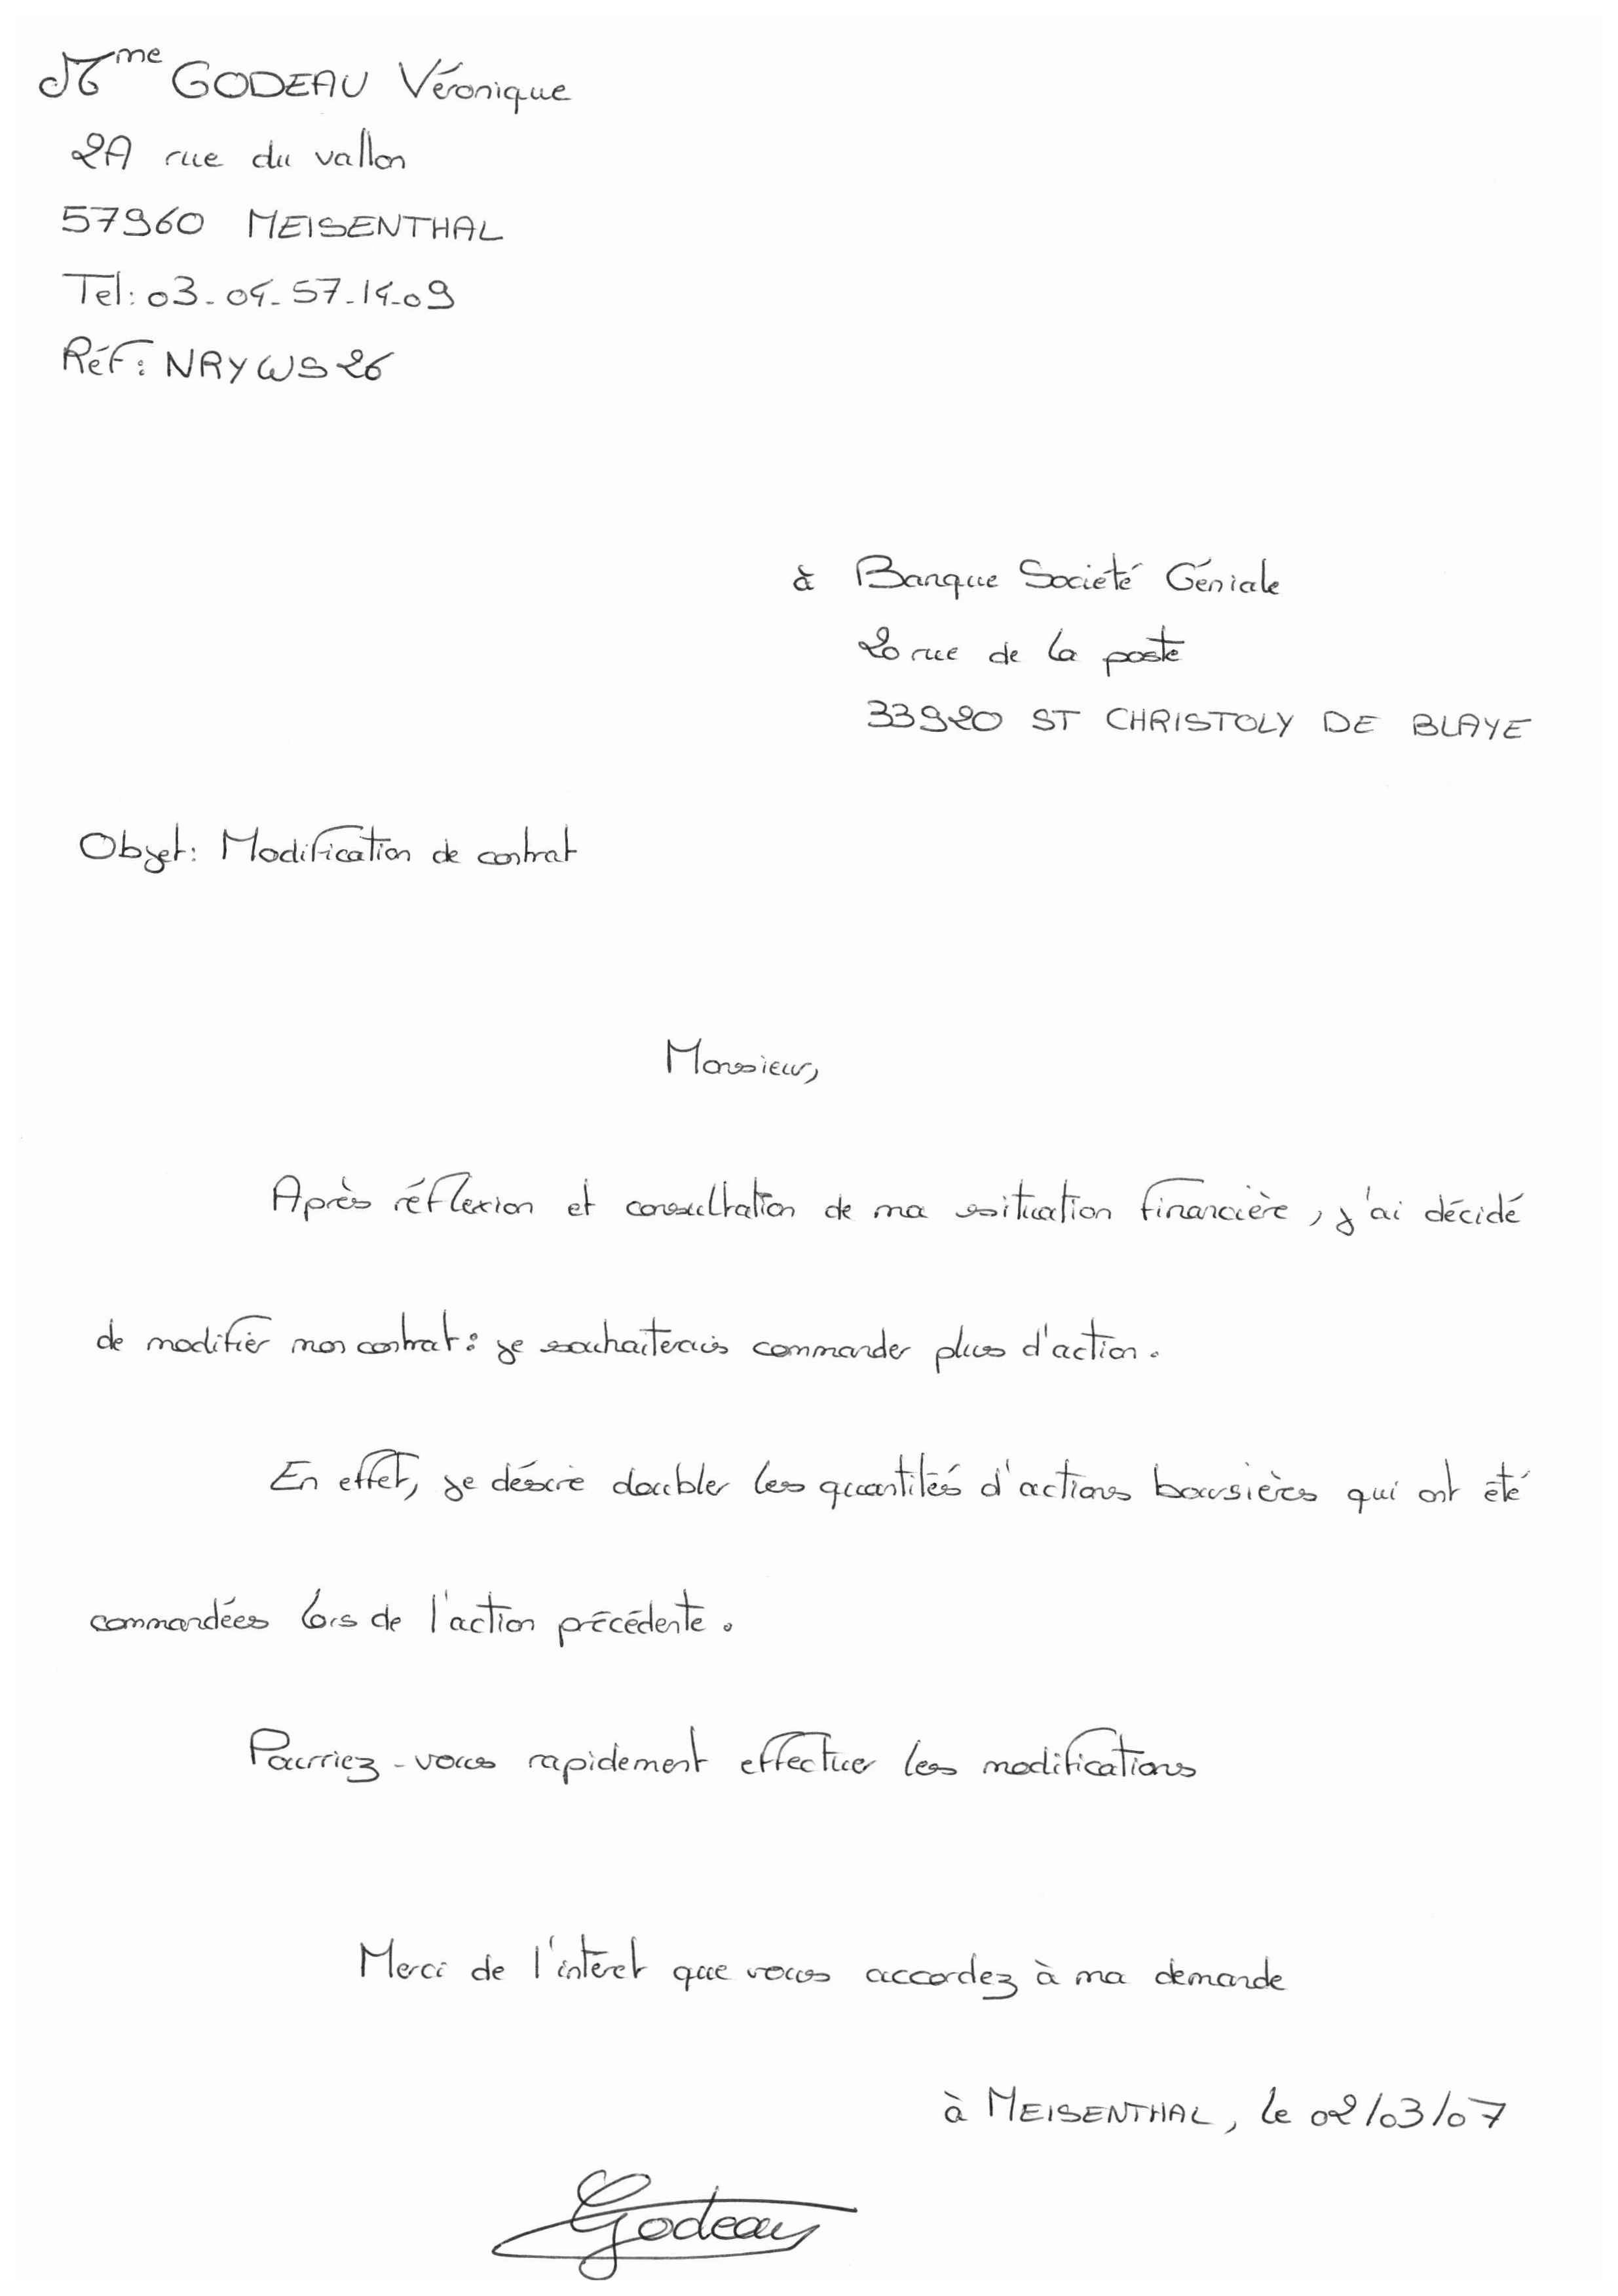 Mme GODEAU Véronique
2A rue du vallon
57960 MEISENTHAL
Tel: 03-04-57-14-09
Réf: NRYWS26
à Banque Société Géniale
20 rue de la poste
33920 ST CHRISTOLY DE BLAYE
Objet: Modification de contrat
Monsieur,
Après réflexion et consultation de ma situation financière, j'ai décidé
de modifier mon contrat: je souhaiterais commander plus d'action.
En effet, je désire doubler les quantités d'actions boursières qui ont été
commandées lors de l'action précédente.
Pourriez-vous rapidement effectuer les modifications
Merci de l'intéret que vous accordez à ma demande
à MEISENTHAL, le 02/03/07
Godeau